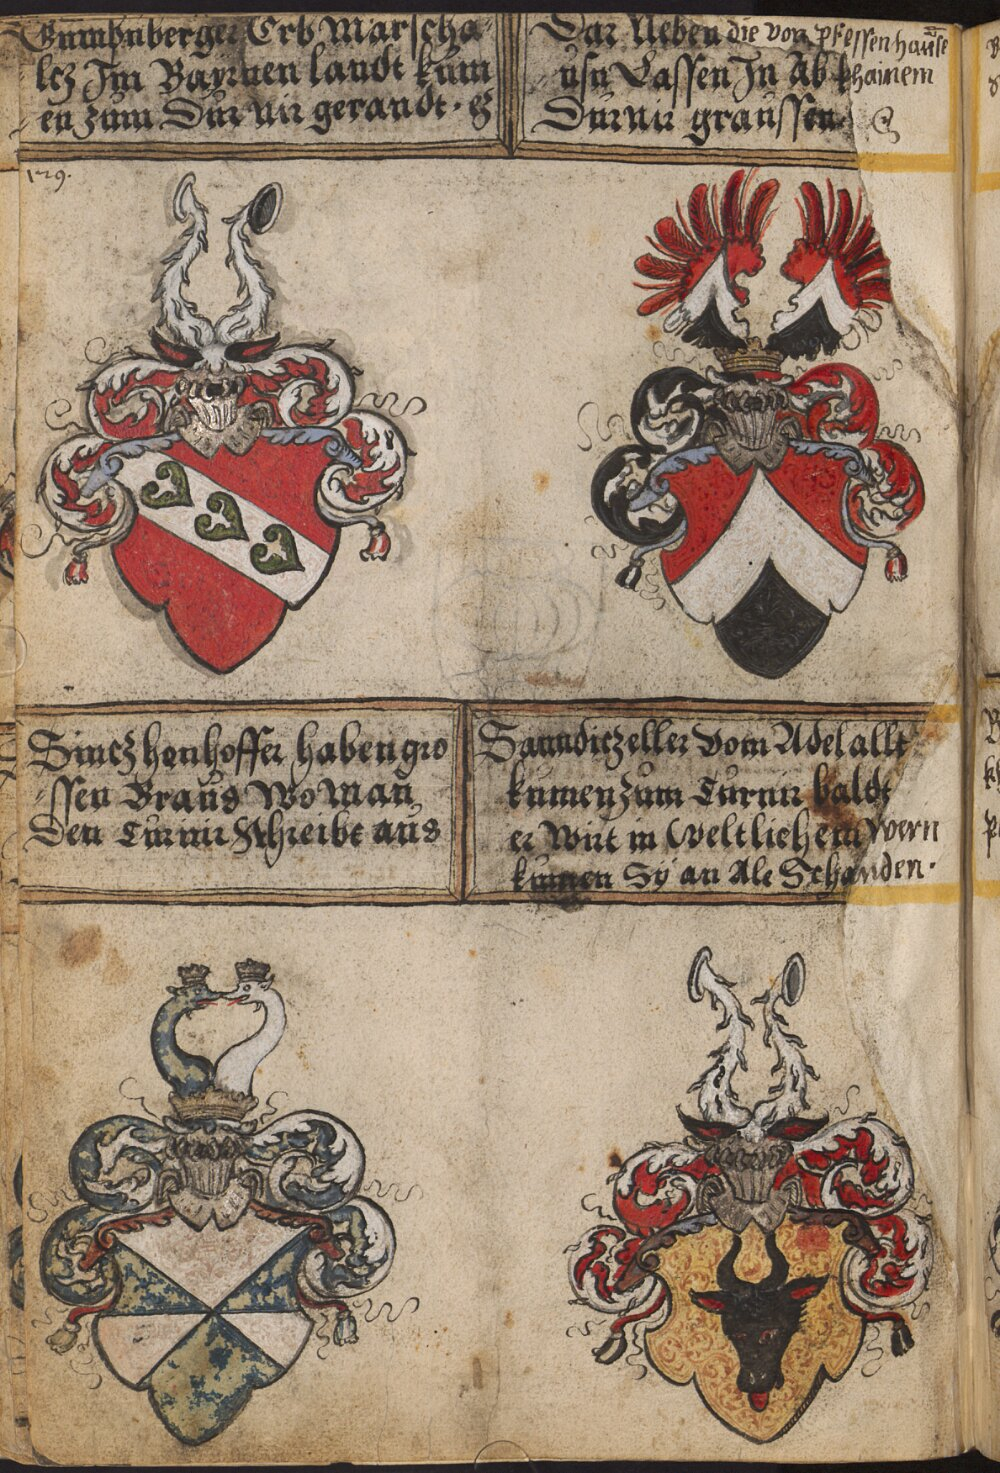 Gumpnberger Erb Marscha
lch Im Bayrnen landt kum
en zum Durnir gerandt · &
Dar Neben die von pfessenhause
usn Lassen In Ab khainem
Durnir graussen &
129.
Sintzhenhoffer haben gro
ssen Braus Wo Man
Den Turnir Schreibt aus
Sanndiczeller Vom Adel allt
kumen zum Turnir baldt
er Wirt in Weltlichem Wern
kumen Sÿ an Ale Schanden ·